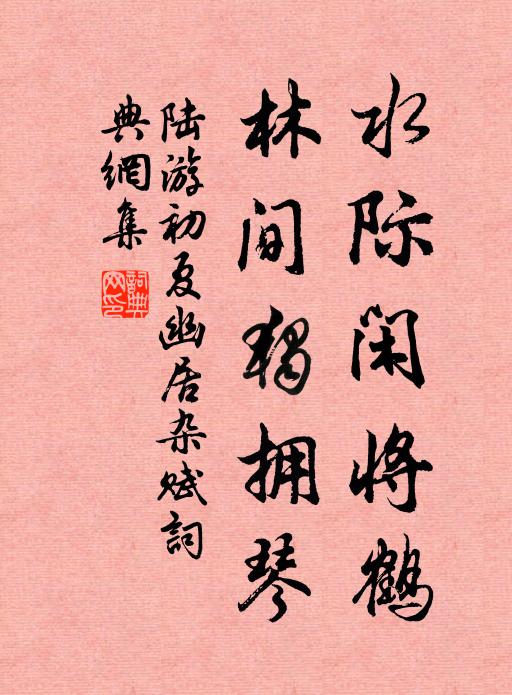 水际闲将鹤
林间独拥琴
陆游初夏幽居杂赋詞
典網集
詞典
网印